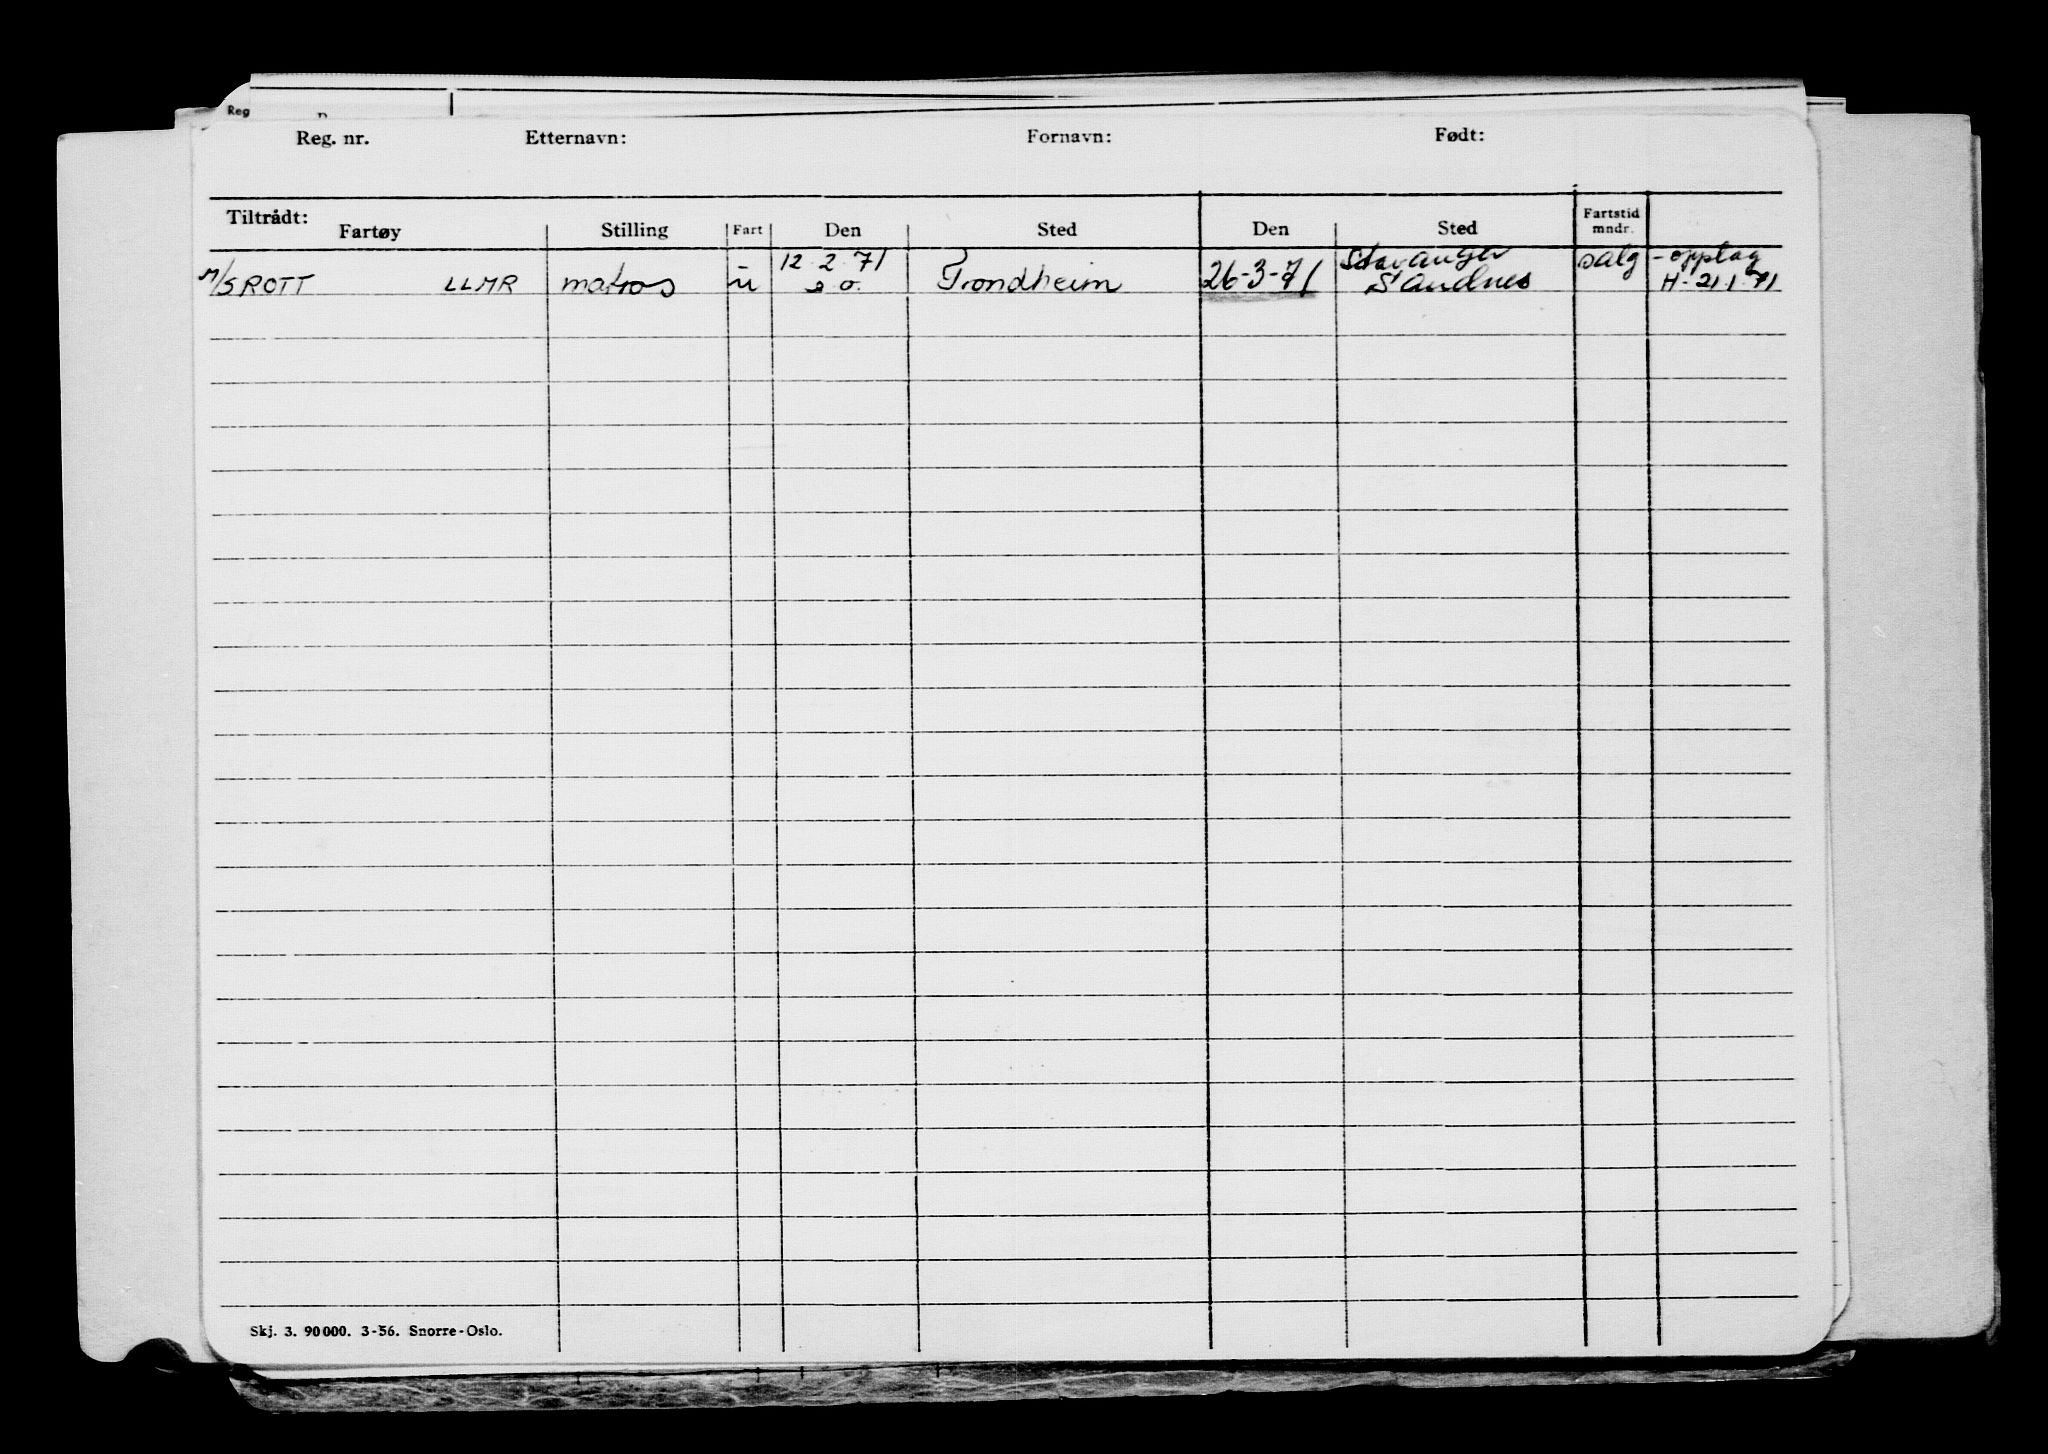 Reg
Reg. nr. Etternavn: Fornavn: Født:
Tiltrådt:
Fartøy Stilling Fart Den Sted Den Sted Fartstid mndr.
M/S ROTT LLMR matros u 12.2.71 Trondheim 26-3-71 Stavanger Sandnes salg - opplag H-21.1.71
Skj. 3. 90000. 3-56. Snorre-Oslo.